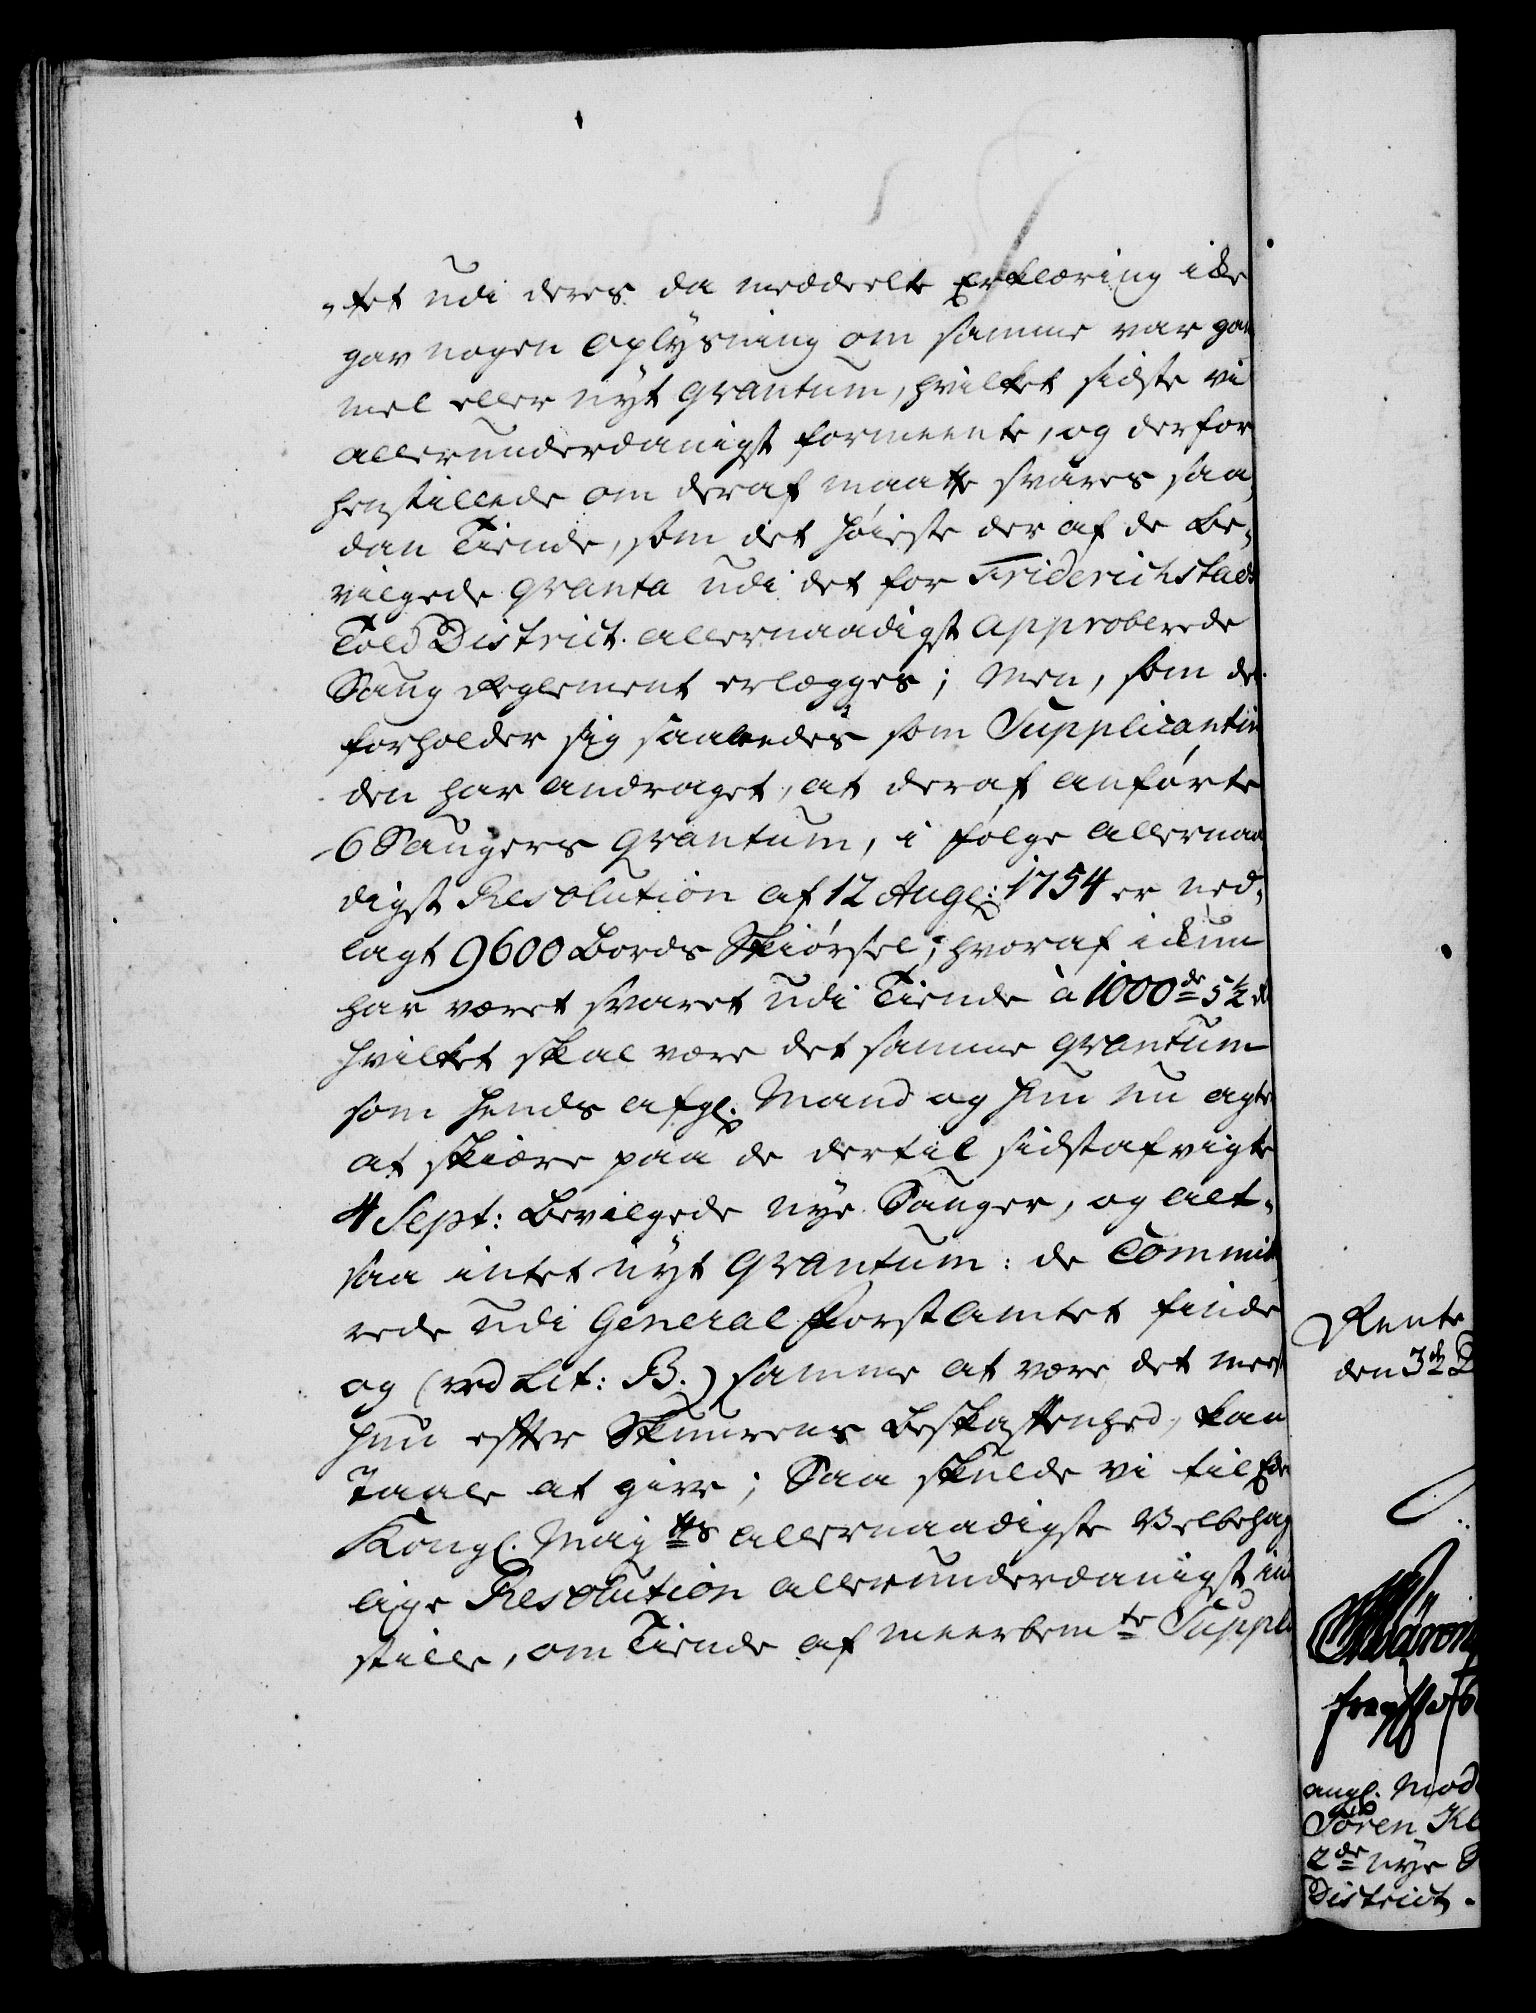 -tet udi deres da meddeelte Erklæring ikke
gav nogen Oplysning om samme var gam
mel eller nyt qvantum, hvilket sidste vi
allerunderdanigst formeente, og derfor
henstillede om deraf maatte svares saa,
dan Tiende, som det höieste der af de be,
vilgede qvanta udi det for Friderichstads
Told District allernaadigst approberede
Saug Reglement erlægges; Men, som det
forholder sig saaledes som Supplicantin
den har andraget, at deraf anförte
6 Saugers qvantum, i følge allernaa
digst Resolution af 12 Aug: 1754 er ned,
lagt 9600 Bords Skiørsel, hvoraf ickun
har været svaret udi Tiende à 1000de 5½ rd
hvilket skal være det samme qvantum
som hends afg. Mand og hun nu agte
at skiære paa de dertil sidstafvigte
4 Sept: bevilgede nye Sauger, og alt-
saa intet nyt qvantum: de Committe
rede udi General Forst Amtet finde
og (ved Lit: B.) samme at være det meeste
hun efter Skovens Beskaffenhed, kan
taale at give; Saa skulde vi til Eders
Kongl. Mayts allernaadigste Velbehag
lige Resolution allerunderdanigst ind
stille, om Tiende af meerbemte Suppli
Rente
den 3de
angl. Mod
Sören Kl
2de nye S
District.